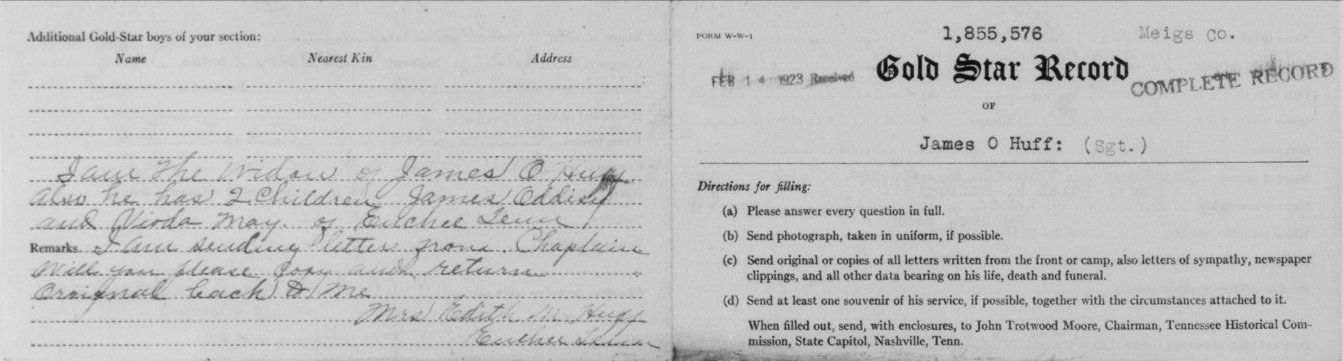 Additional Gold-Star boys of your section:
Name Nearest Kin Address
I am the Widow of James O Huff
also he has 2 Children James
and May. of Euchee Tenn
Remarks. I am sending letter from Chaplain
Will you please Copy and return
Orignal back to Me
Mrs Edith M. Huff
Euchee Tenn
FORM W-W-1
1,855,576
Meigs Co.
FEB 14 1923 Received
Gold Star Record
COMPLETE RECORD
OF
James O Huff: (Sgt.)
Directions for filling:
(a) Please answer every question in full.
(b) Send photograph, taken in uniform, if possible.
(c) Send original or copies of all letters written from the front or camp, also letters of sympathy, newspaper
clippings, and all other data bearing on his life, death and funeral.
(d) Send at least one souvenir of his service, if possible, together with the circumstances attached to it.
When filled out, send, with enclosures, to John Trotwood Moore, Chairman, Tennessee Historical Com-
mission, State Capitol, Nashville, Tenn.